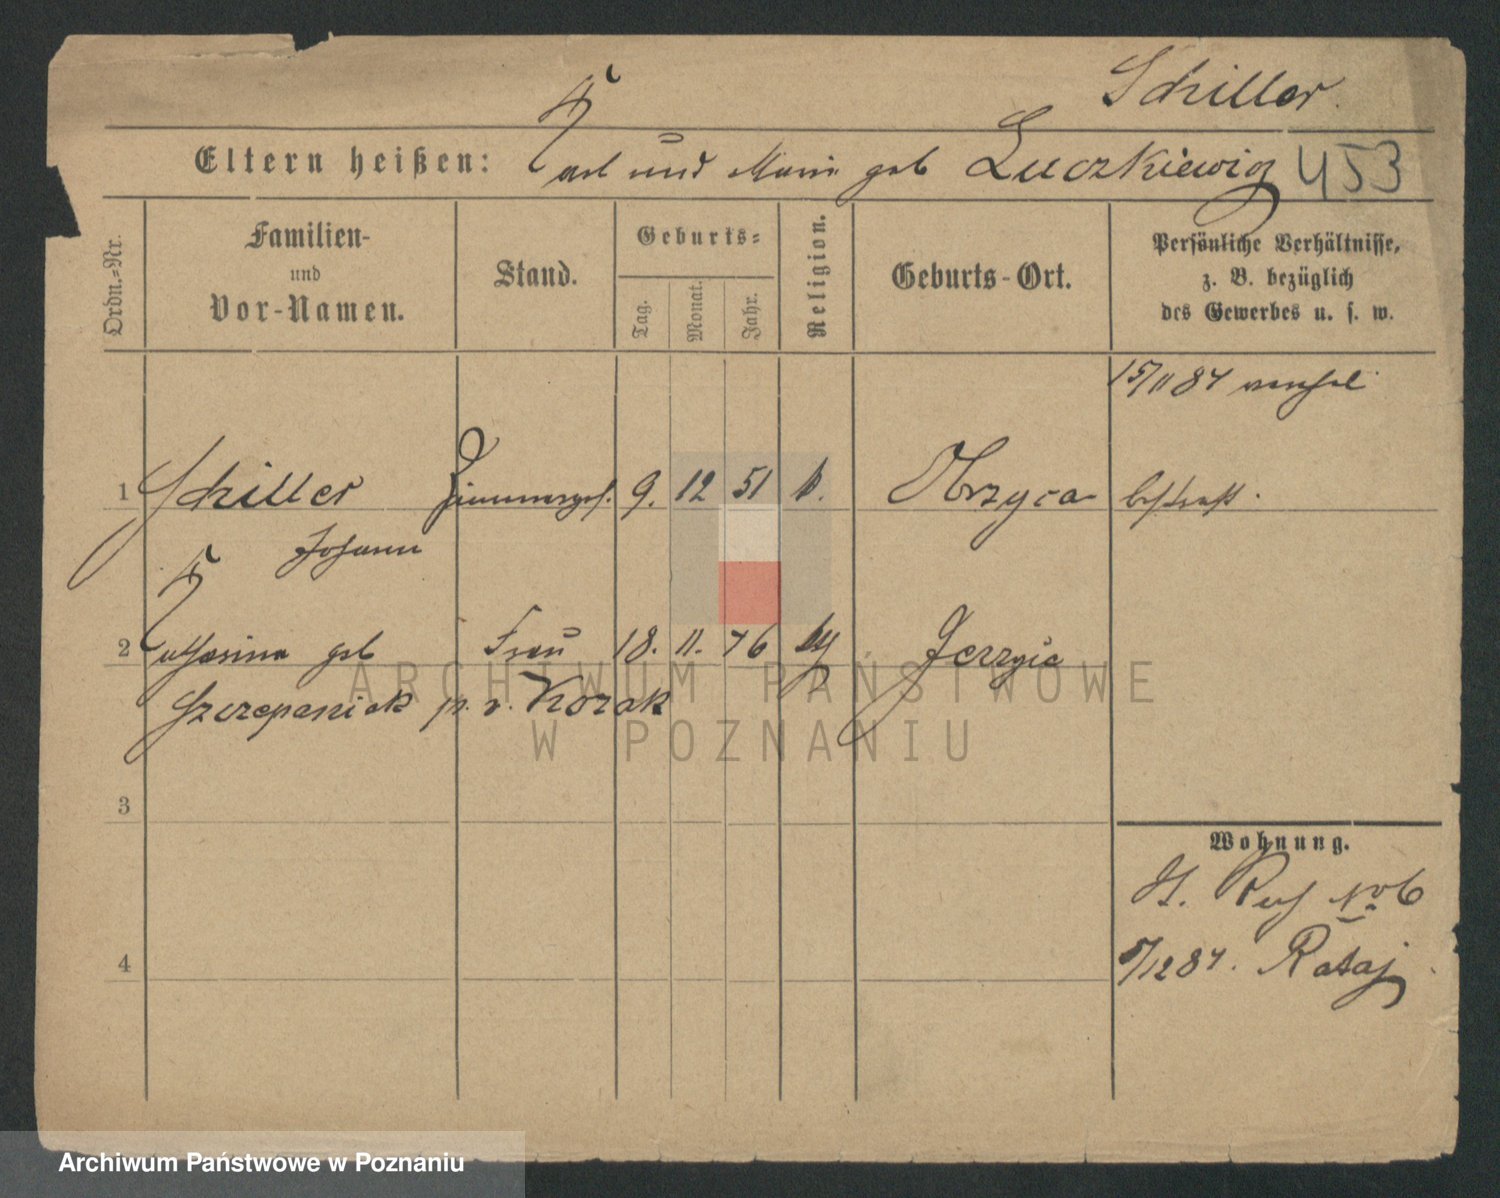 Schiller.
Eltern heißen: Karl und Marie geb Luczkiewicz 453
Ordn.=Nr.
Familien-
und
Vor-Namen.
Stand.
Geburts=
Tag.
Monat.
Jahr.
Religion.
Geburts-Ort.
Persönliche Verhältnisse,
z. B. bezüglich
des Gewerbes u. s. w.
15/11 87
1 Schiller Zimmerges. 9. 12 51 k. Obrzyca bestraft.
Johann
2 Katharina geb Frau 18. 11. 76 Jerzyce
Szczepaniak p. v. Kozak
3
4
Wohnung.
No 6
5/12 87. Rataj
ARCHIWUM PAŃSTWOWE
W POZNANIU
Archiwum Państwowe w Poznaniu